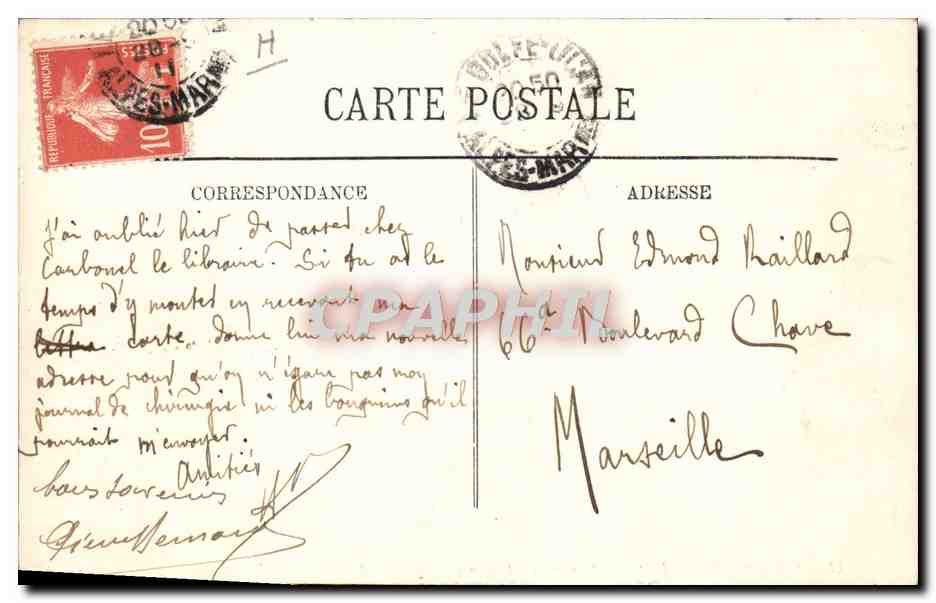 REPUBLIQUE FRANÇAISE
10
20 50
11
ALPES-MARIT
H
GOLFE-JUAN
50
ALPES-MARIT
CARTE POSTALE
CORRESPONDANCE
ADRESSE
J'ai oublié hier de passer chez
Carbonel le libraire. Si tu as le
temps d'y monter en recevant ma
lettre carte, donne lui ma nouvelle
adresse pour qu'on n'égare pas mon
journal de chirurgie ni les bouquins qu'il
pourrait m'envoyer.
Amitiés
bons souvenirs
Pierre Bernard
Monsieur Edmond Raillard
66a Boulevard Chave
Marseille
CPAPHIL